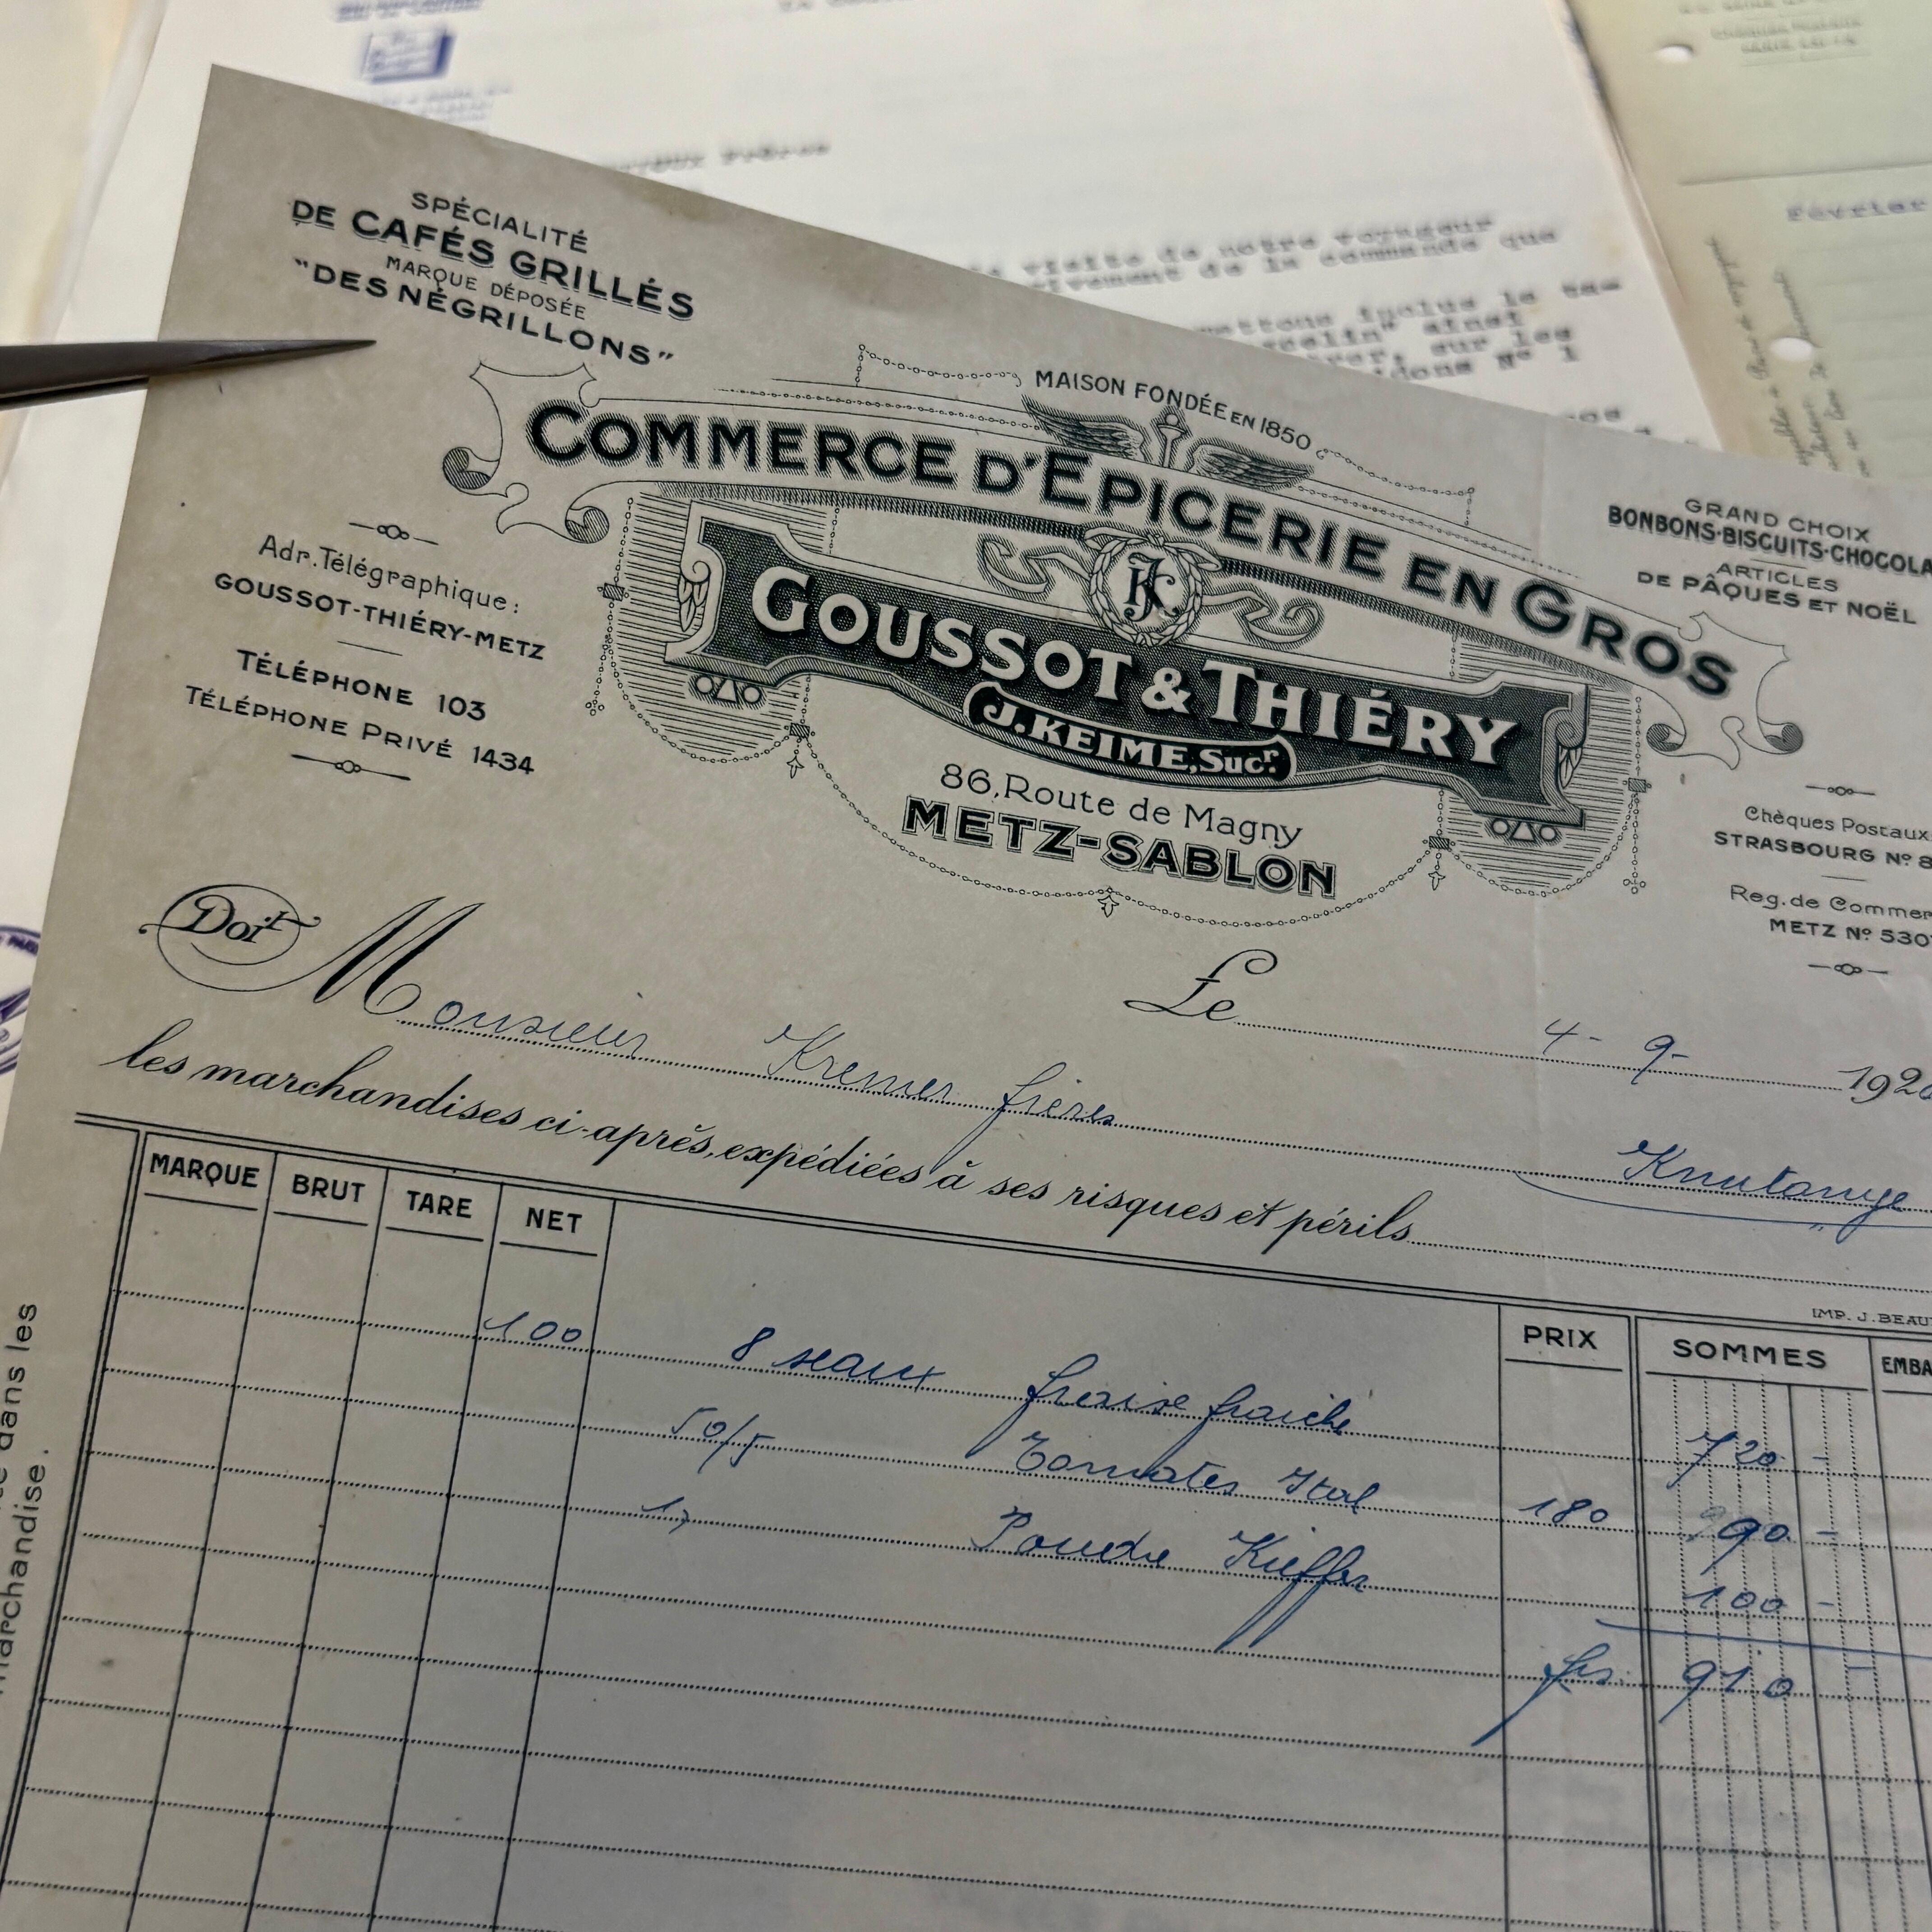 SPÉCIALITÉ
DE CAFÉS GRILLÉS
MARQUE DÉPOSÉE
"DES NÉGRILLONS"
MAISON FONDÉE EN 1850
COMMERCE D'EPICERIE EN GROS
JK
GOUSSOT & THIÉRY
J. KEIME, Sucr.
86, Route de Magny
METZ-SABLON
GRAND CHOIX
BONBONS·BISCUITS·CHOCOLA
ARTICLES
DE PÂQUES ET NOËL
Adr. Télégraphique:
GOUSSOT-THIÉRY-METZ
TÉLÉPHONE 103
TÉLÉPHONE PRIVÉ 1434
Chèques Postaux
STRASBOURG Nº 8
Reg. de Commer
METZ Nº 530
Doit Monsieur Kremer frères
Le 4-9- 192
Knutange
les marchandises ci-après, expédiées à ses risques et périls
IMP. J. BEAU
MARQUE BRUT TARE NET PRIX SOMMES EMBA
100 8 seaux fraise fraiche 720 -
50/5 Tomates Ital 180 90 -
Poudre Kieffer 100 -
frs. 910 -
dans les
marchandise.
visite de notre voyageur
de la commande que
inclus le
ainsi
sur les
Nº 1
Février